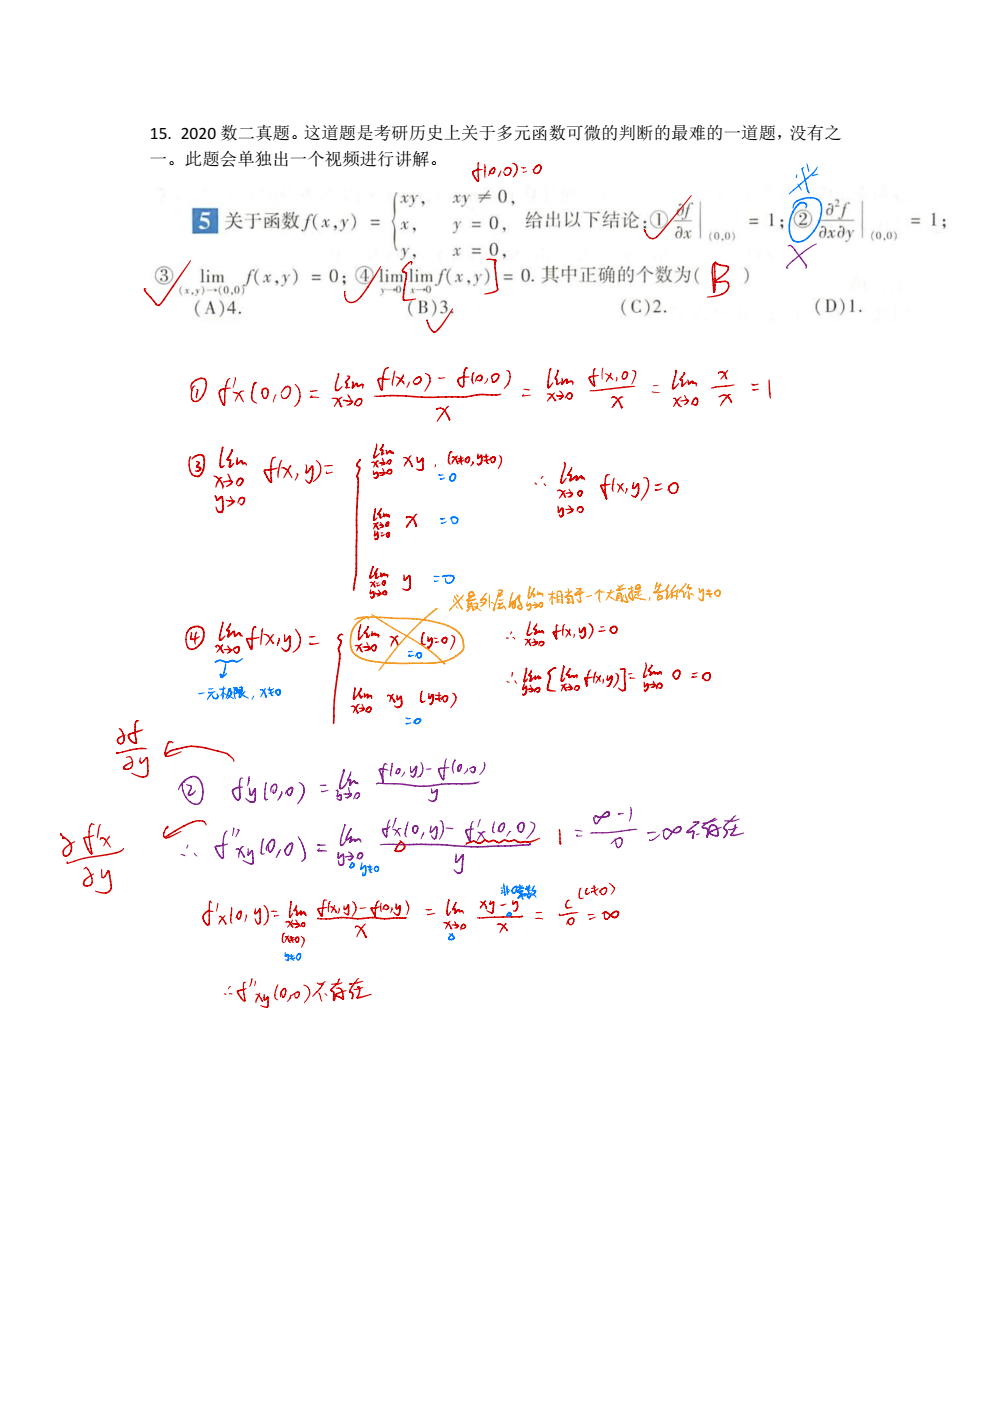 15. 2020数二真题。这道题是考研历史上关于多元函数可微的判断的最难的一道题，没有之
一。此题会单独出一个视频进行讲解。
f(0,0)=0
※
5 关于函数f(x,y) = { xy, xy ≠ 0, x, y = 0, y, x = 0, 给出以下结论:① ∂f/∂x |(0,0) = 1;② ∂²f/∂x∂y |(0,0) = 1;
③ lim (x,y)→(0,0) f(x,y) = 0;④ lim y→0 [lim x→0 f(x,y)] = 0. 其中正确的个数为( B )
(A)4. (B)3. (C)2. (D)1.
① f'x(0,0) = lim x→0 (f(x,0) - f(0,0))/x = lim x→0 f(x,0)/x = lim x→0 x/x = 1
③ lim x→0 y→0 f(x,y) = { lim x→0 y→0 xy, (x≠0,y≠0) =0
lim x→0 y=0 x =0
lim x=0 y→0 y =0
∴ lim x→0 y→0 f(x,y) = 0
※最外层的 lim y→0 相当于一个大前提,告诉你 y≠0
④ lim x→0 f(x,y) = { lim x→0 x (y=0) =0
lim x→0 xy (y≠0) =0
一元极限, x≠0
∴ lim x→0 f(x,y)=0
∴ lim y→0 [lim x→0 f(x,y)] = lim y→0 0 = 0
∂f/∂y
② f'y(0,0) = lim y→0 (f(0,y) - f(0,0))/y
∂f'x/∂y
∴ f''xy(0,0) = lim y→0 y≠0 (f'x(0,y) - f'x(0,0))/y 1 = (∞-1)/0 = ∞ 不存在
f'x(0,y) = lim x→0 (x≠0) y≠0 (f(x,y) - f(0,y))/x = lim x→0 (xy - y)/x 非0常数 = C/0 (C≠0) = ∞
∴ f''xy(0,0) 不存在